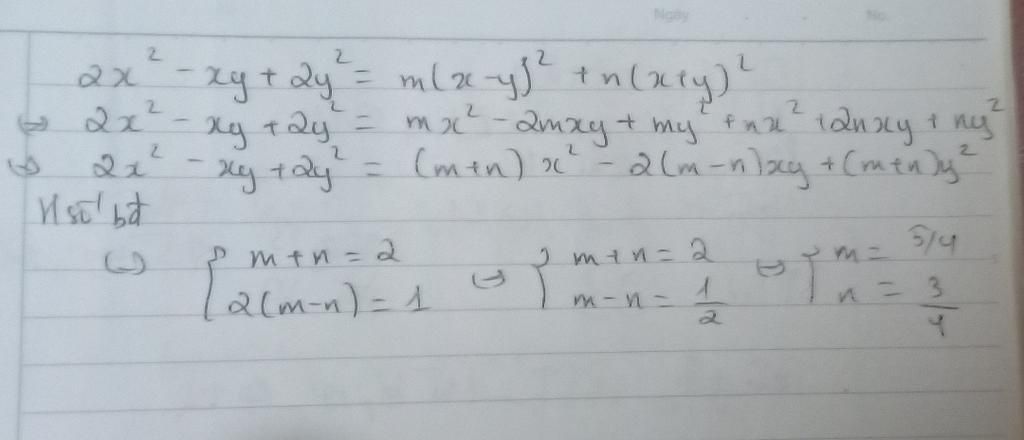 Ngày No.
2x² - xy + 2y² = m(x-y)² + n(x+y)²
⇔ 2x² - xy + 2y² = mx² - 2mxy + my² + nx² + 2nxy + ny²
⇔ 2x² - xy + 2y² = (m+n)x² - 2(m-n)xy + (m+n)y²
⇔ { m+n = 2 ⇔ { m+n = 2 ⇔ { m = 5/4
2(m-n) = 1 m-n = 1/2 n = 3/4